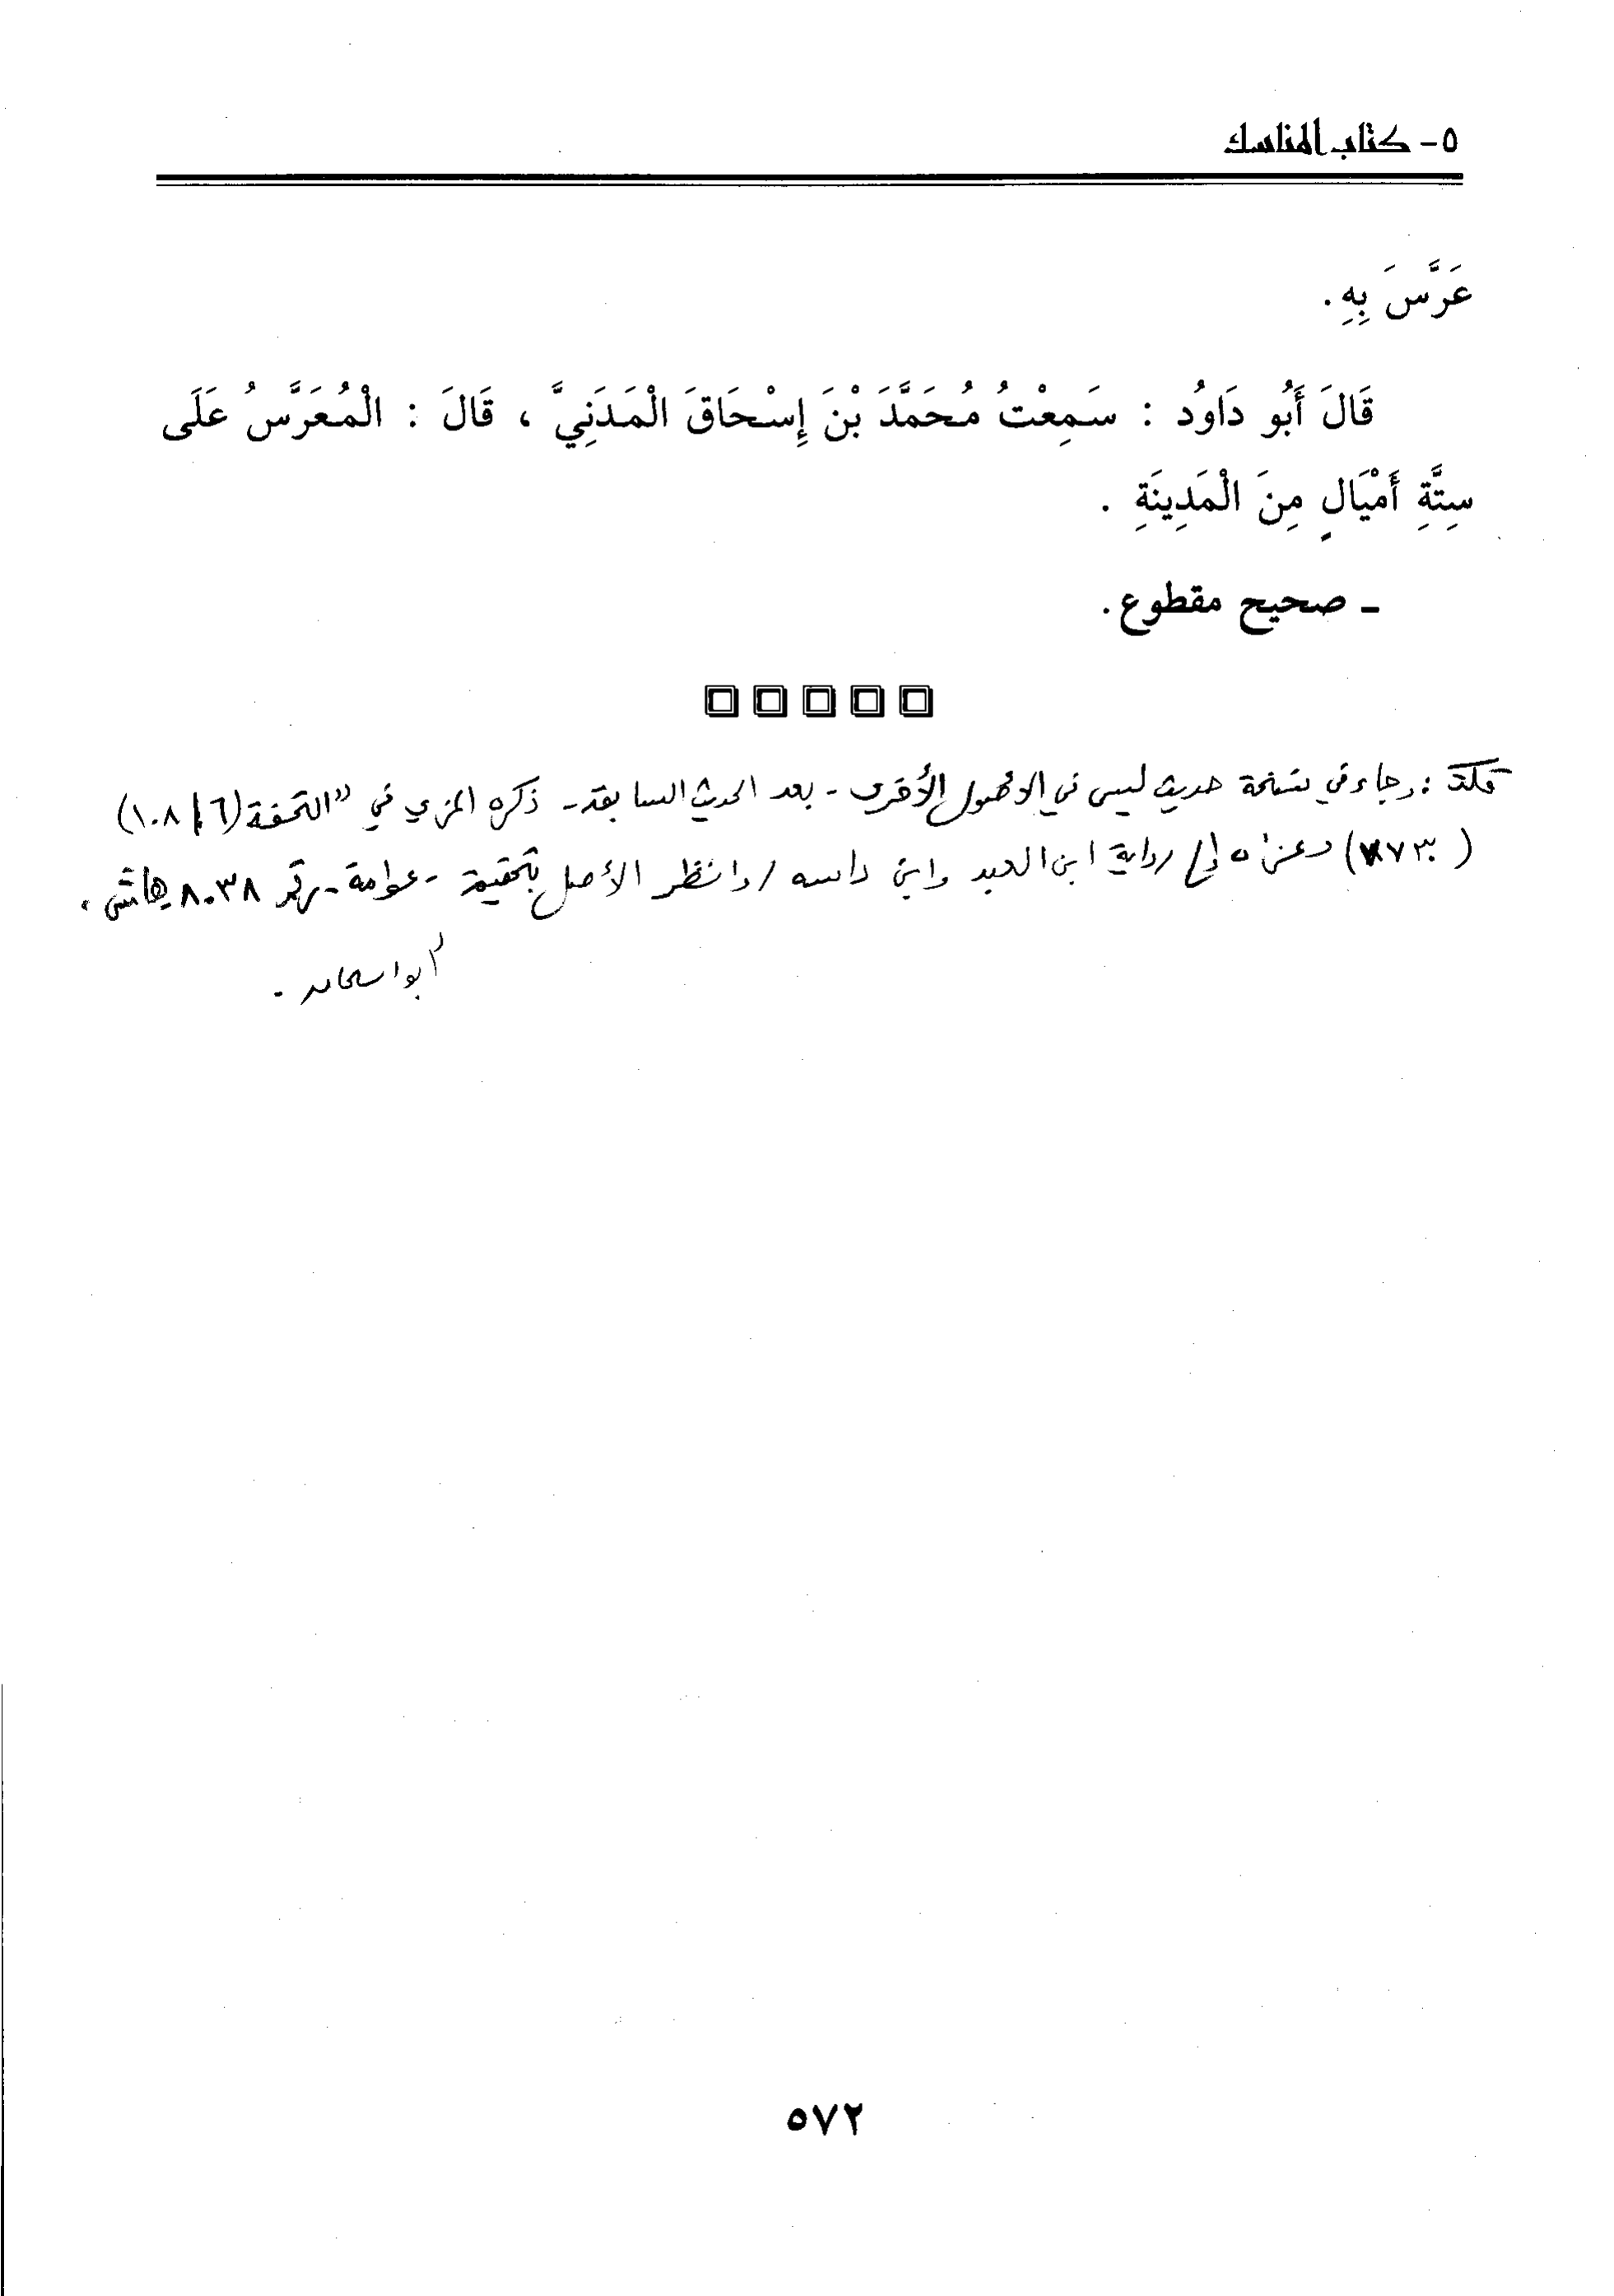 ٥- كتاب المناسك
عَرَّسَ بِهِ.
قَالَ أَبُو دَاوُد : سَمِعْتُ مُحَمَّدَ بْنَ إِسْحَاقَ الْمَدَنِيَّ ، قَالَ : الْمُعَرَّسُ عَلَى
سِتَّةِ أَمْيَالٍ مِنَ الْمَدِينَةِ .
ـ صحيح مقطوع.
قلت : وجاء في نسخة حديث ليس في الأصول الأخرى - بعد الحديث السابق - ذكره المزي في "التحفة (٦/ ١٠٨)
(٧٧٣٠) وعزاه إلى رواية ابن العبد وابن داسه / وانظر الأصل بتحقيق - عوامة - رقم ٢٠٣٨ هامش .
أبو
٥٧٢